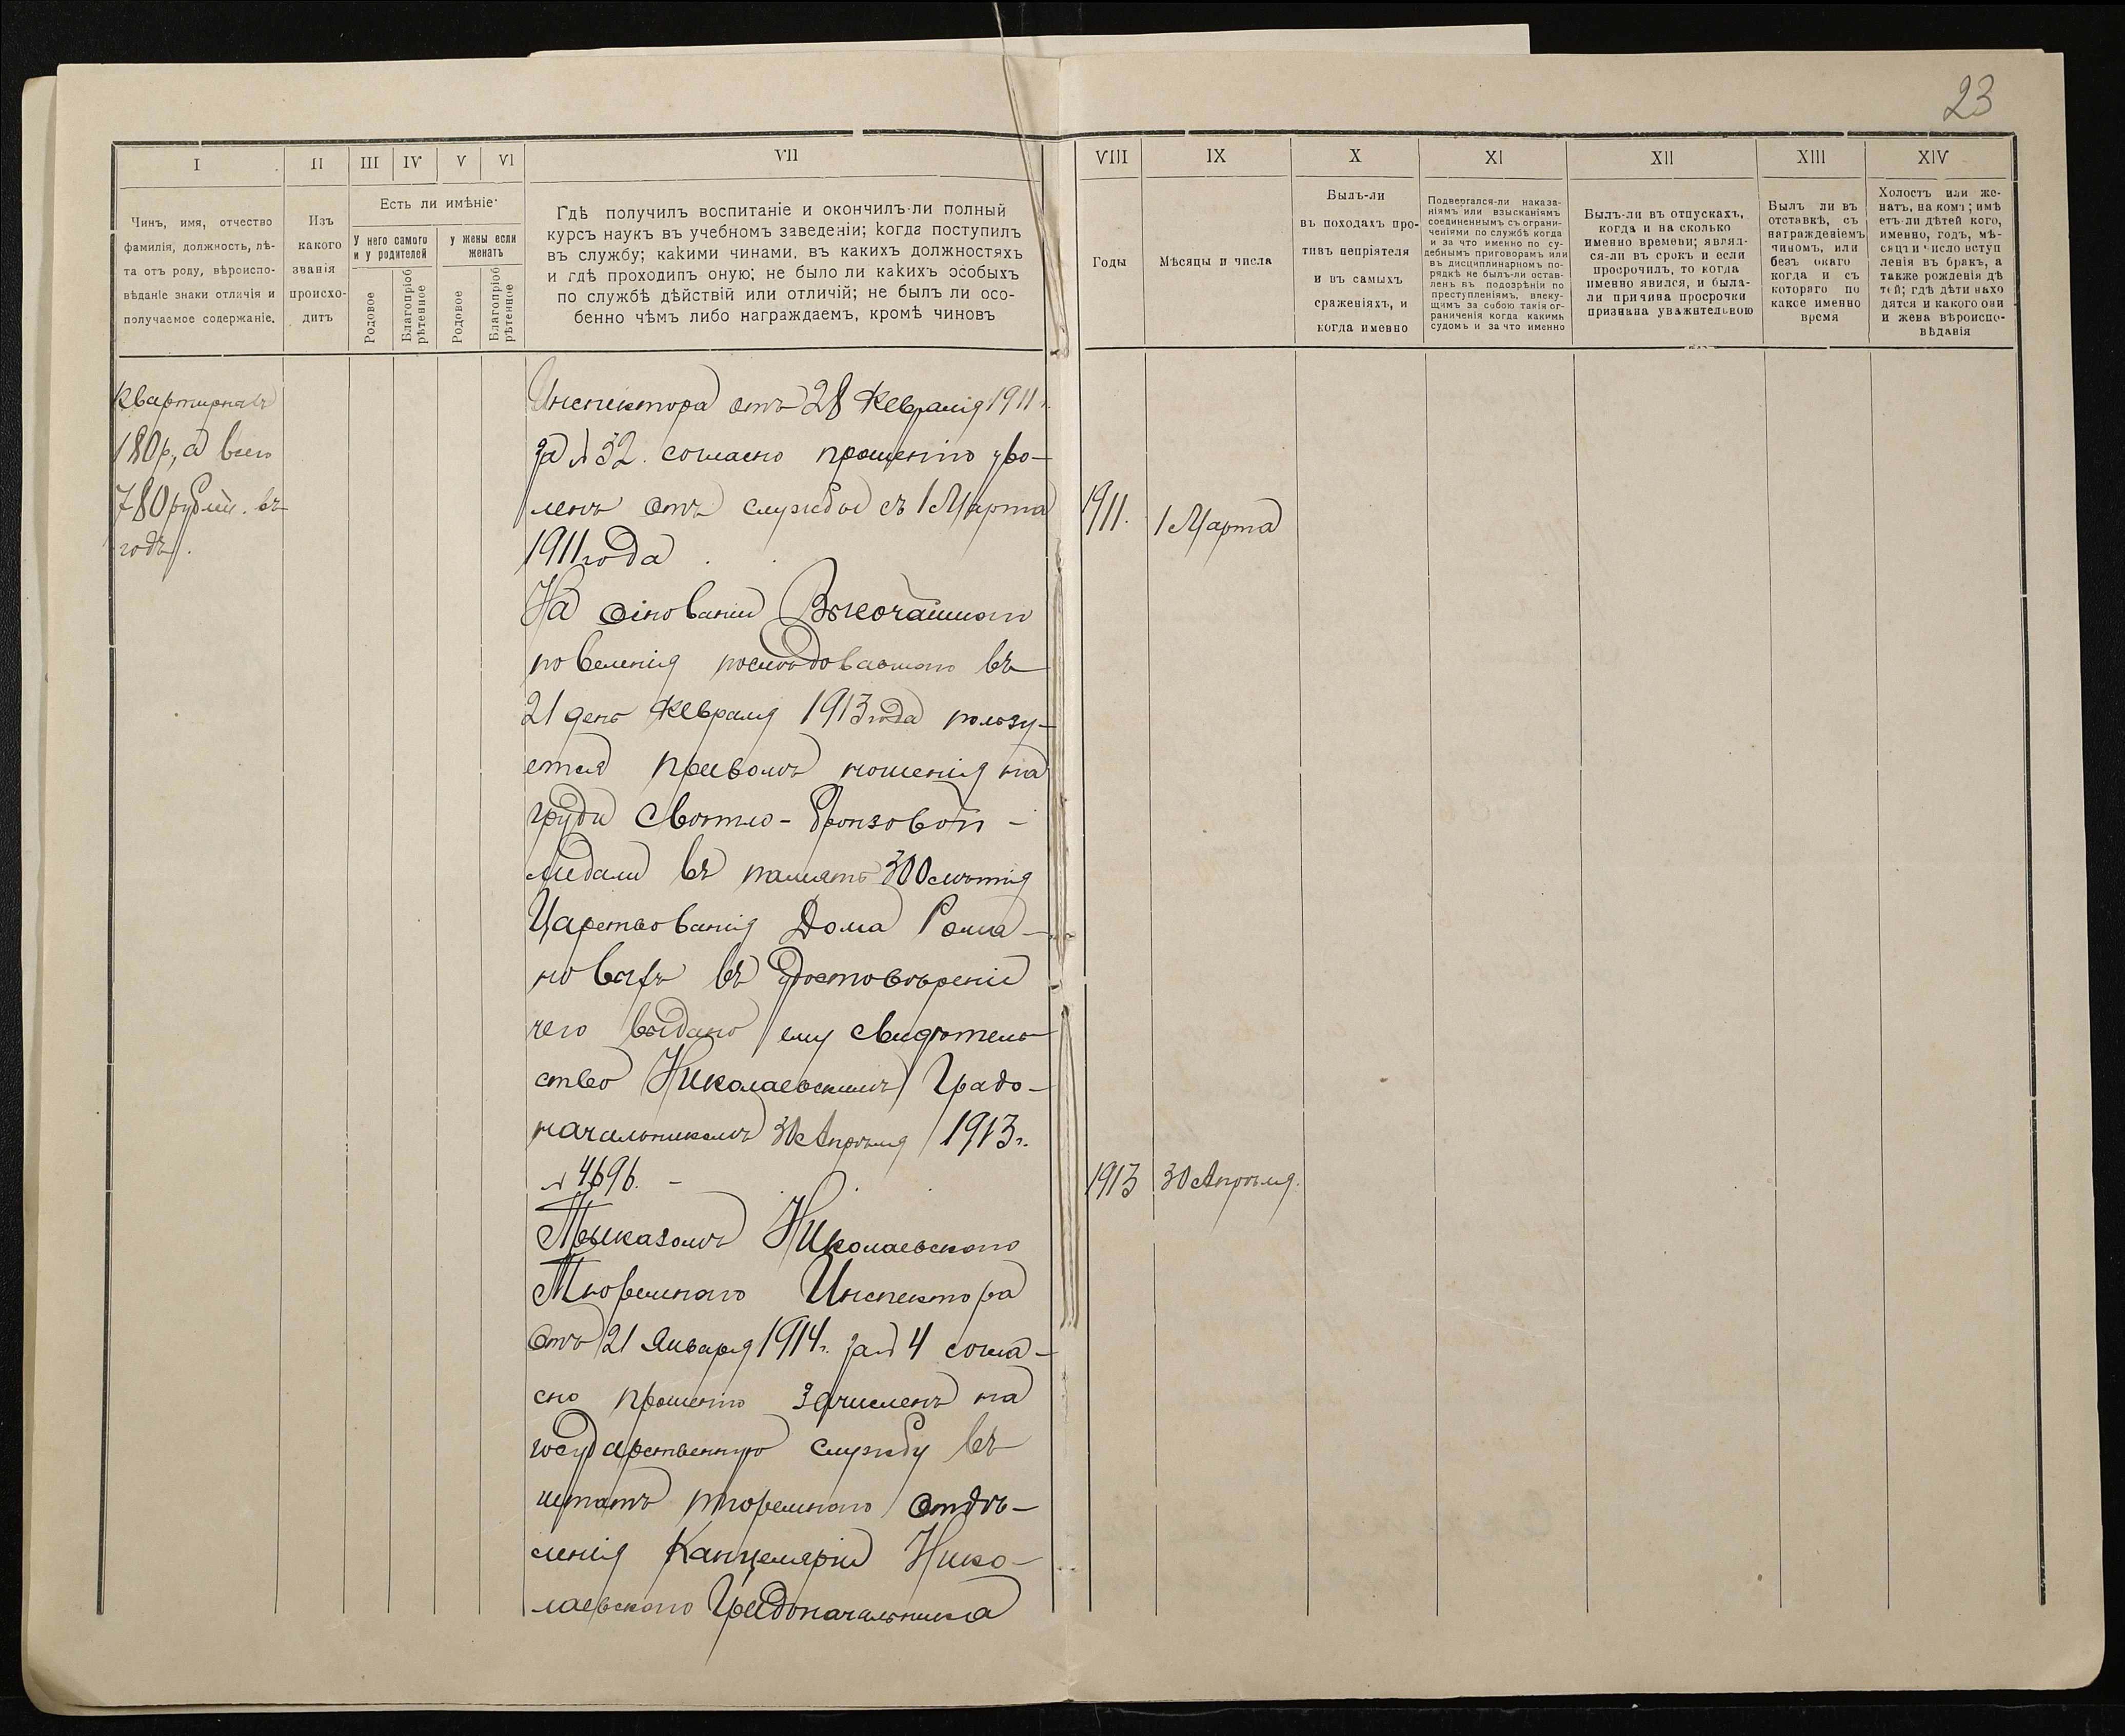 23
I
II
III
IV
V
VI
VII
VIII
IX
X
XI
XII
XIII
XIV
Чинъ, имя, отчество
фамилія, должность, лѣ-
та отъ роду, вѣроиспо-
вѣданіе знаки отличія и
получаемое содержаніе.
Изъ
какого
званія
происхо-
дитъ
Есть ли имѣніе
У него самого
и у родителей
у жены если
женатъ
Родовое
Благопріоб
рѣтенное
Родовое
Благопріоб
рѣтенное
Гдѣ получилъ воспитаніе и окончилъ-ли полный
курсъ наукъ въ учебномъ заведеніи; когда поступилъ
въ службу; какими чинами, въ какихъ должностяхъ
и гдѣ проходилъ оную; не было ли какихъ особыхъ
по службѣ дѣйствій или отличій; не былъ ли осо-
бенно чѣмъ либо награждаемъ, кромѣ чиновъ
Годы
Мѣсяцы и числа
Былъ-ли
въ походахъ про-
тивъ непріятеля
и въ самыхъ
сраженіяхъ, и
когда именно
Подвергался-ли наказа-
ніямъ или взысканіямъ
соединеннымъ съ ограни-
ченіями по службѣ когда
и за что именно по су-
дебнымъ приговорамъ или
въ дисциплинарномъ по-
рядкѣ не былъ-ли остав-
ленъ въ подозрѣніи по
преступленіямъ, влеку-
щимъ за собою такія ог-
раниченія когда какимъ
судомъ и за что именно
Былъ-ли въ отпускахъ,
когда и на сколько
именно времени; являл-
ся-ли въ срокъ и если
просрочилъ, то когда
именно явился, и была-
ли причина просрочки
признана уважительною
Былъ ли въ
отставкѣ, съ
награжденіемъ
чиномъ, или
безъ онаго
когда и съ
котораго по
какое именно
время
Холостъ или же-
натъ, на комъ; имѣ
етъ-ли дѣтей кого,
именно, годъ, мѣ-
сяцъ и число вступ
ленія въ бракъ, а
также рожденія дѣ
тей; гдѣ дѣти нахо
дятся и какого они
и жена вѣроиспо-
вѣданія
Квартирныхъ
180 р, а всего
780 рублей. въ
годъ.
Инспектора отъ 28 Февраля 1911 г.
за № 32. согласно прошенію уво-
ленъ отъ службы съ 1 Марта
1911 года.
1911. 1 Марта
На основаніи Высочайшаго
повеленія последовавшаго въ
21 день Февраля 1913 года пользу-
ется правомъ ношенія на
груди Свѣтло-бронзовой -
медали въ память 300 лѣтія
Царствованія Дома Рома-
новыхъ въ удостовѣреніе
чего выдано ему свидѣтель-
ство Николаевскимъ Градо-
начальникомъ 30 Апрѣля 1913 г.
№ 4696. -
1913 30 Апрѣля.
Приказомъ Николаевскаго
Тюремнаго Инспектора
отъ 21 Января 1914 г. за № 4 согла-
сно прошенію зачисленъ на
государственную службу въ
штатъ тюремнаго отдѣ-
ленія Канцеляріи Нико-
лаевскаго Градоначальника